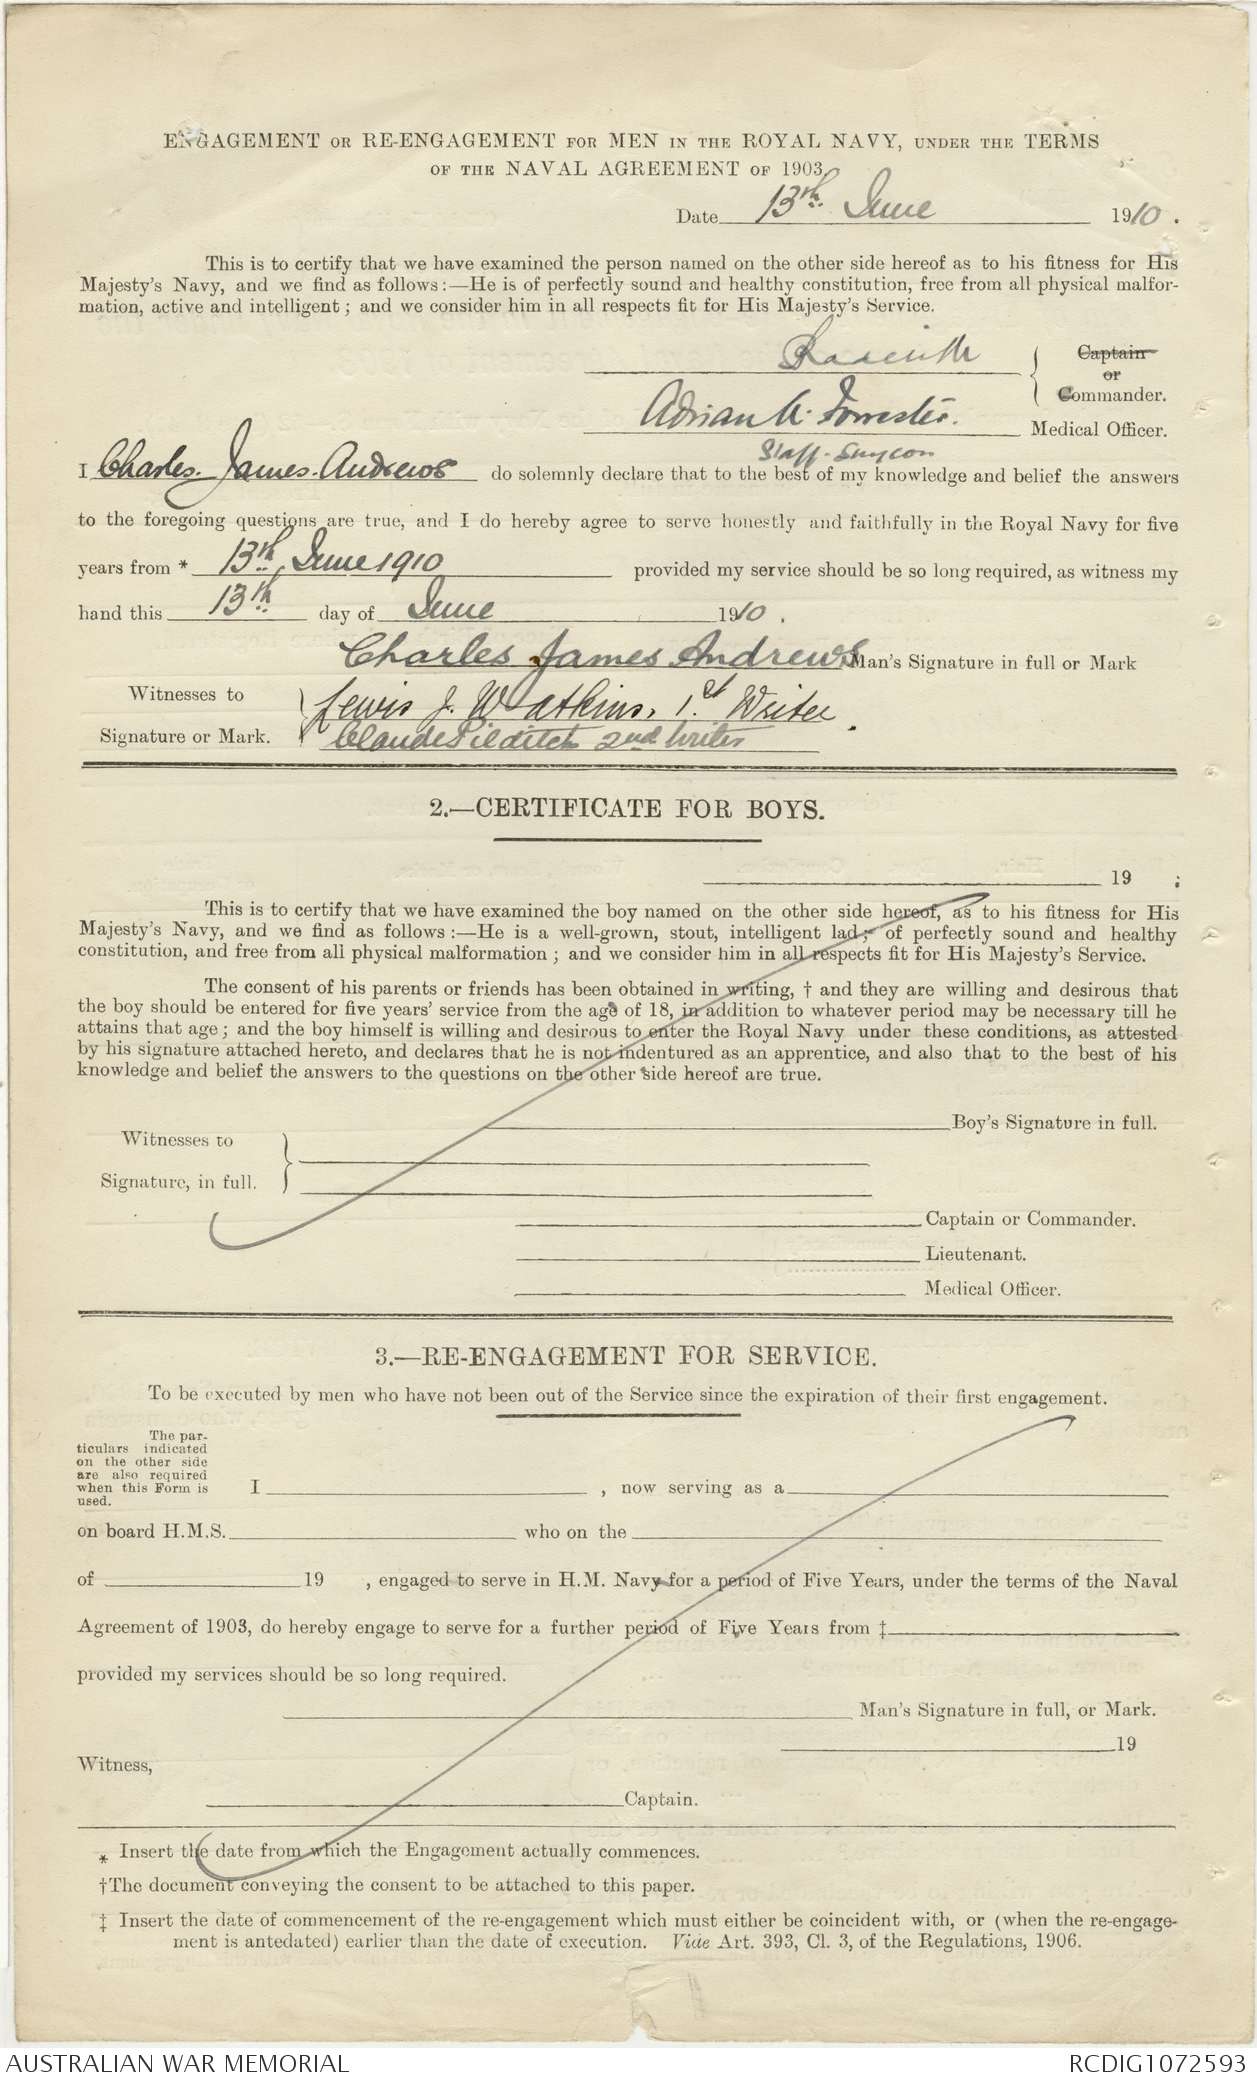 ENGAGEMENT OR RE-ENGAGEMENT FOR MEN IN THE ROYAL NAVY, UNDER THE TERMS
OF THE NAVAL AGREEMENT OF 1903.
Date 13th June 1910.
This is to certify that we have examined the person named on the other side hereof as to his fitness for His
Majesty's Navy, and we find as follows:—He is of perfectly sound and healthy constitution, free from all physical malfor-
mation, active and intelligent; and we consider him in all respects fit for His Majesty's Service.
Captain
or
Commander.
Adrian A. Forrester. Medical Officer.
Staff-Surgeon
I Charles James Andrews do solemnly declare that to the best of my knowledge and belief the answers
to the foregoing questions are true, and I do hereby agree to serve honestly and faithfully in the Royal Navy for five
years from * 13th June 1910 provided my service should be so long required, as witness my
hand this 13th day of June 1910.
Charles James Andrews Man's Signature in full or Mark
Witnesses to
Lewis J. Watkins, 1st Writer
Signature or Mark.
Claude Pilditch 2nd Writer
2.—CERTIFICATE FOR BOYS.
19 ;
This is to certify that we have examined the boy named on the other side hereof, as to his fitness for His
Majesty's Navy, and we find as follows:—He is a well-grown, stout, intelligent lad; of perfectly sound and healthy
constitution, and free from all physical malformation; and we consider him in all respects fit for His Majesty's Service.
The consent of his parents or friends has been obtained in writing, † and they are willing and desirous that
the boy should be entered for five years' service from the age of 18, in addition to whatever period may be necessary till he
attains that age; and the boy himself is willing and desirous to enter the Royal Navy under these conditions, as attested
by his signature attached hereto, and declares that he is not indentured as an apprentice, and also that to the best of his
knowledge and belief the answers to the questions on the other side hereof are true.
Boy's Signature in full.
Witnesses to
Signature, in full.
Captain or Commander.
Lieutenant.
Medical Officer.
3.—RE-ENGAGEMENT FOR SERVICE.
To be executed by men who have not been out of the Service since the expiration of their first engagement.
The par-
ticulars indicated
on the other side
are also required
when this Form is
used.
I , now serving as a
on board H.M.S. who on the
of 19 , engaged to serve in H.M. Navy for a period of Five Years, under the terms of the Naval
Agreement of 1903, do hereby engage to serve for a further period of Five Years from ‡
provided my services should be so long required.
Man's Signature in full, or Mark.
19
Witness,
Captain.
* Insert the date from which the Engagement actually commences.
†The document conveying the consent to be attached to this paper.
‡ Insert the date of commencement of the re-engagement which must either be coincident with, or (when the re-engage-
ment is antedated) earlier than the date of execution. Vide Art. 393, Cl. 3, of the Regulations, 1906.
AUSTRALIAN WAR MEMORIAL
RCDIG1072593